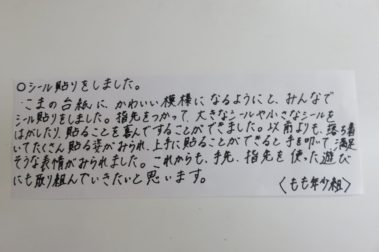 ○シール貼りをしました。
こまの台紙に、かわいい模様になるようにと、みんなで
シール貼りをしました。指先をつかって、大きなシールや小さなシールを
はがしたり、貼ることを喜んですることができました。以前よりも、落ち着
いてたくさん貼る姿がみられ、上手に貼ることができると手を叩いて、満足
そうな表情がみられました。これからも、手先、指先を使った遊び
にも取り組んでいきたいと思います。
〈もも年少組〉